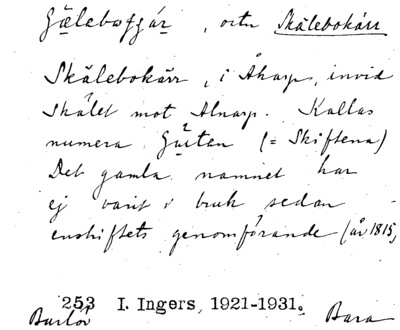 Gälebofgár, ortn Skälebokärr
Skälebokärr, i Åkarp, invid
skälet mot Alnarp. Kallas
numera Gúten (= Skiftena)
Det gamla namnet har
ej varit i bruk sedan
enskiftets genomförande (år 1815)
253 I. Ingers, 1921-1931.
Burlöv Bara